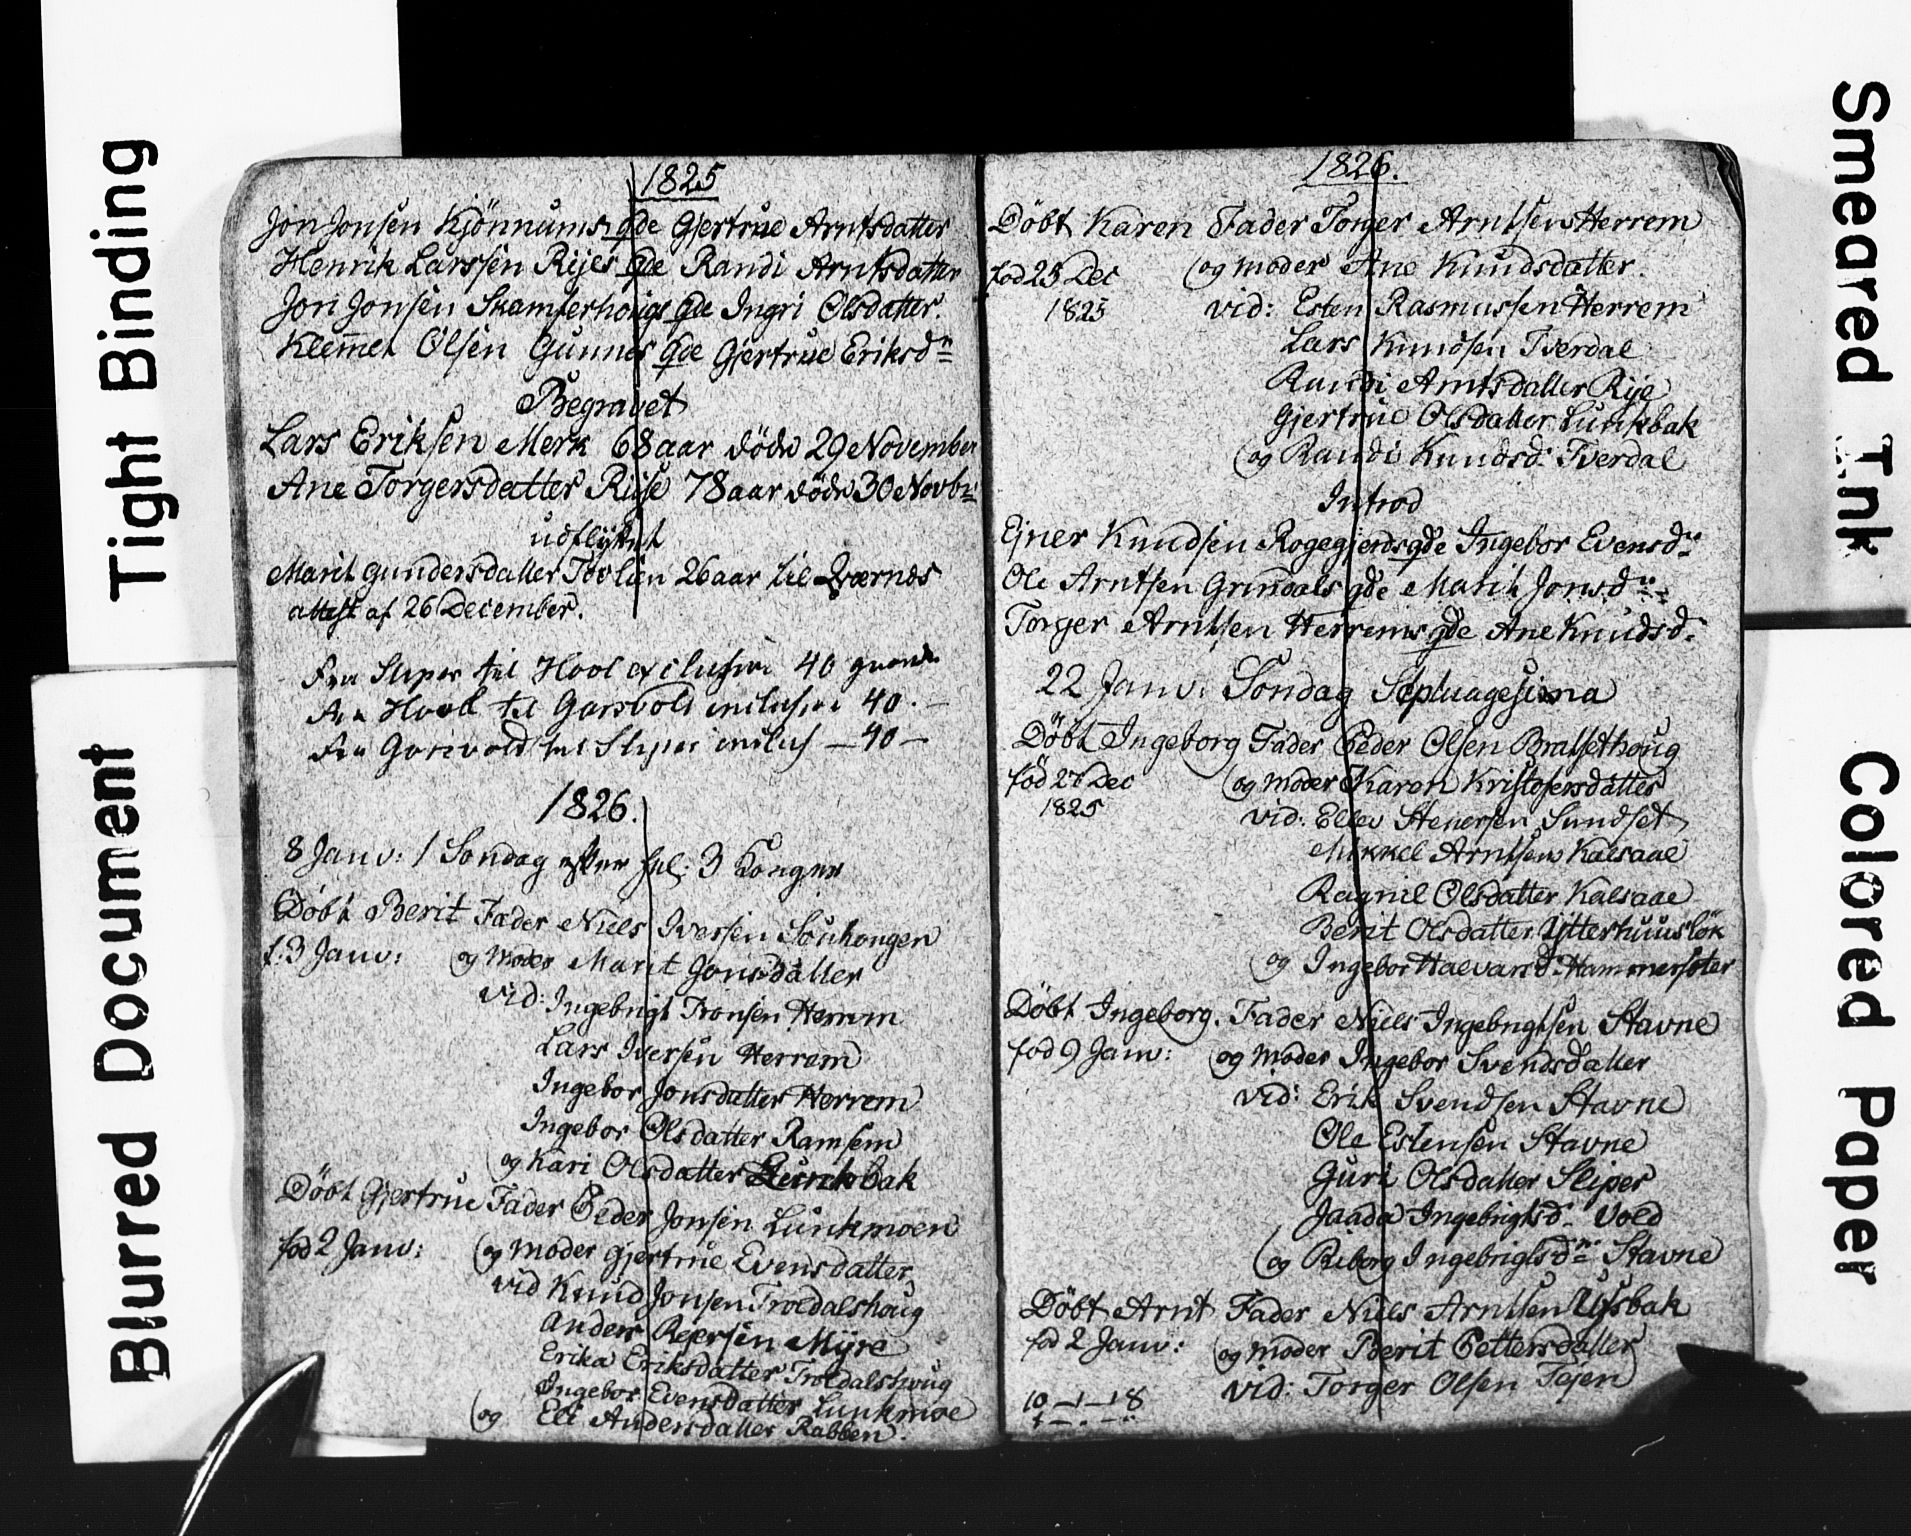 Tight Binding
Blurred Document
1825
Jon Jonsen Kjönnums qde Gjertrue Arntsdatter
Henrik Larssen Rijes qde Randi Arntsdatter
Jon Jonsen Skamferhougs qde Ingri Olsdatter.
Klemmet Olsen Gunnes qde Gjertrue Eriksdr
Begravet
Lars Eriksen Merk 68 aar döde 29 November
Ane Torgersdatter Riise 78 aar döde 30 Novbr
udflyttet
Marit Gundersdatter Tovlien 26 aar til Værnes
attest af 26 December.
Fra Sliper til Hool exclusive 40 gaarde
Fra Hool til Gorsvold inclusive 40.—
Fra Gorsvold til Sliper inclus — 40 —
1826.
8 Janv: 1 Sondag efter hel: 3 Konger
Döbt Berit Fader Niels Iversen Sönhougen
f. 3 Janv: og Moder Marit Jonsdatter
vid: Ingebrigt Tronsen Herrem
Lars Iversen Herrem
Ingebor Jonsdatter Herrem
Ingebor Olsdatter Ramsem
og Kari Olsdatter Lunkbak
Döbt Gjertrue Fader Peder Jonsen Lunkmoen
fød 2 Janv: og Moder Gjertrue Evensdatter
vid Knud Jonsen Troldalshoug
Anders Reersen Mÿre
Erika Eriksdatter Troldalshoug
Ingebor Evensdatter Lunkmoe
og Eli Andersdatter Rabben.
1826.
Döbt Karen Fader Torger Arntsen Herrem
fød 25 Dec og Moder Ane Knudsdatter.
1825 vid: Esten Rasmussen Herrem
Lars Knudsen Tverdal
Randi Arntsdatter Rije
Gjertrue Olsdatter Lunkbak
og Randi Knudsd: Tverdal
Introd
Ejner Knudsen Rogegjerds qde Ingebor Evensdr
Ole Arntsen Grindals qde Marit Jonsdr
Torger Arntsen Herrems qde Ane Knudsd.
22 Janv: Søndag Septuagesima
Döbt Ingeborg Fader Peder Olsen Bratsethoug
fød 27 Dec og Moder Karen Kristofersdatter
1825 vid: Ellev Stenersen Sundset
Mikkel Arntsen Kalsaae
Ragnil Olsdatter Kalsaae
Berit Olsdatter Ytterhuusløk
og Ingebor Halvarsd. Hammersøter
Döbt Ingeborg. Fader Niels Ingebrigtsen Stavne
fød 9 Janv: og Moder Ingebor Svendsdatter
vid: Erik Svendsen Stavne
Ole Estensen Stavne
Guri Olsdatter Sliper
Jaada Ingebrigtsd. Vold
og Riborg Ingebrigtsdr Stavne
Döbt Arnt Fader Niels Arntsen Ufsbak
fød 2 Janv: og Moder Berit Pettersdatter
vid: Torger Olsen Tejen
10 — 1 — 18
Smeared Ink
Colored Paper